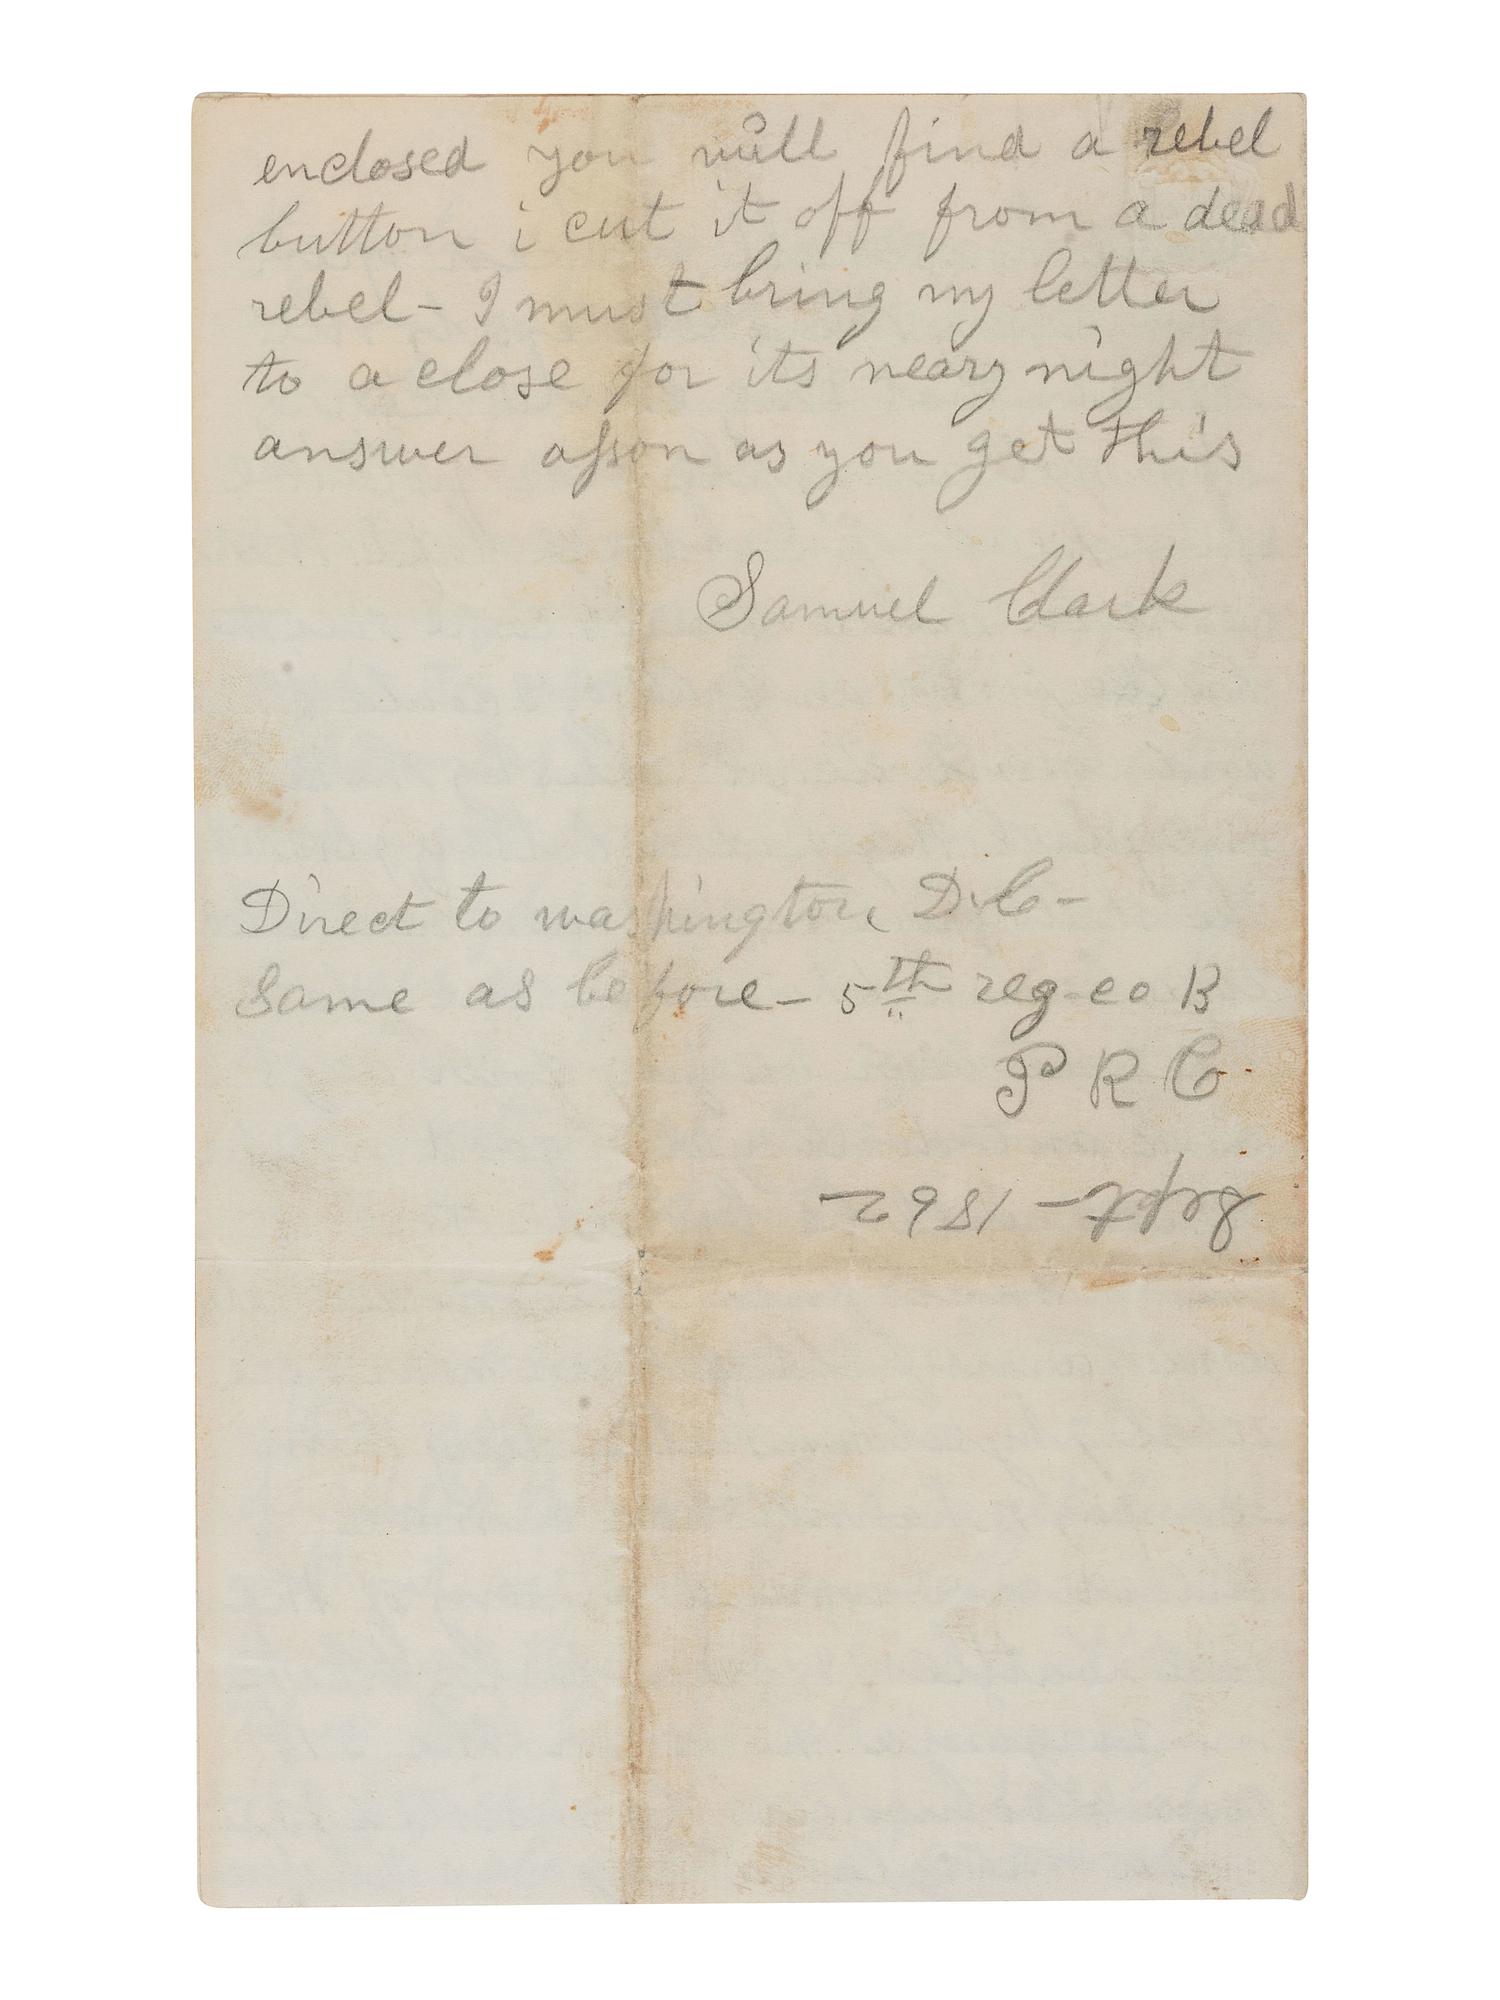 enclosed you will find a rebel
button i cut it off from a dead
rebel - I must bring my letter
to a close for its neary night
answer asson as you get this
Samuel Clark
Direct to washington, D.C -
Same as before - 5th reg co B
P R C
Sept - 1862